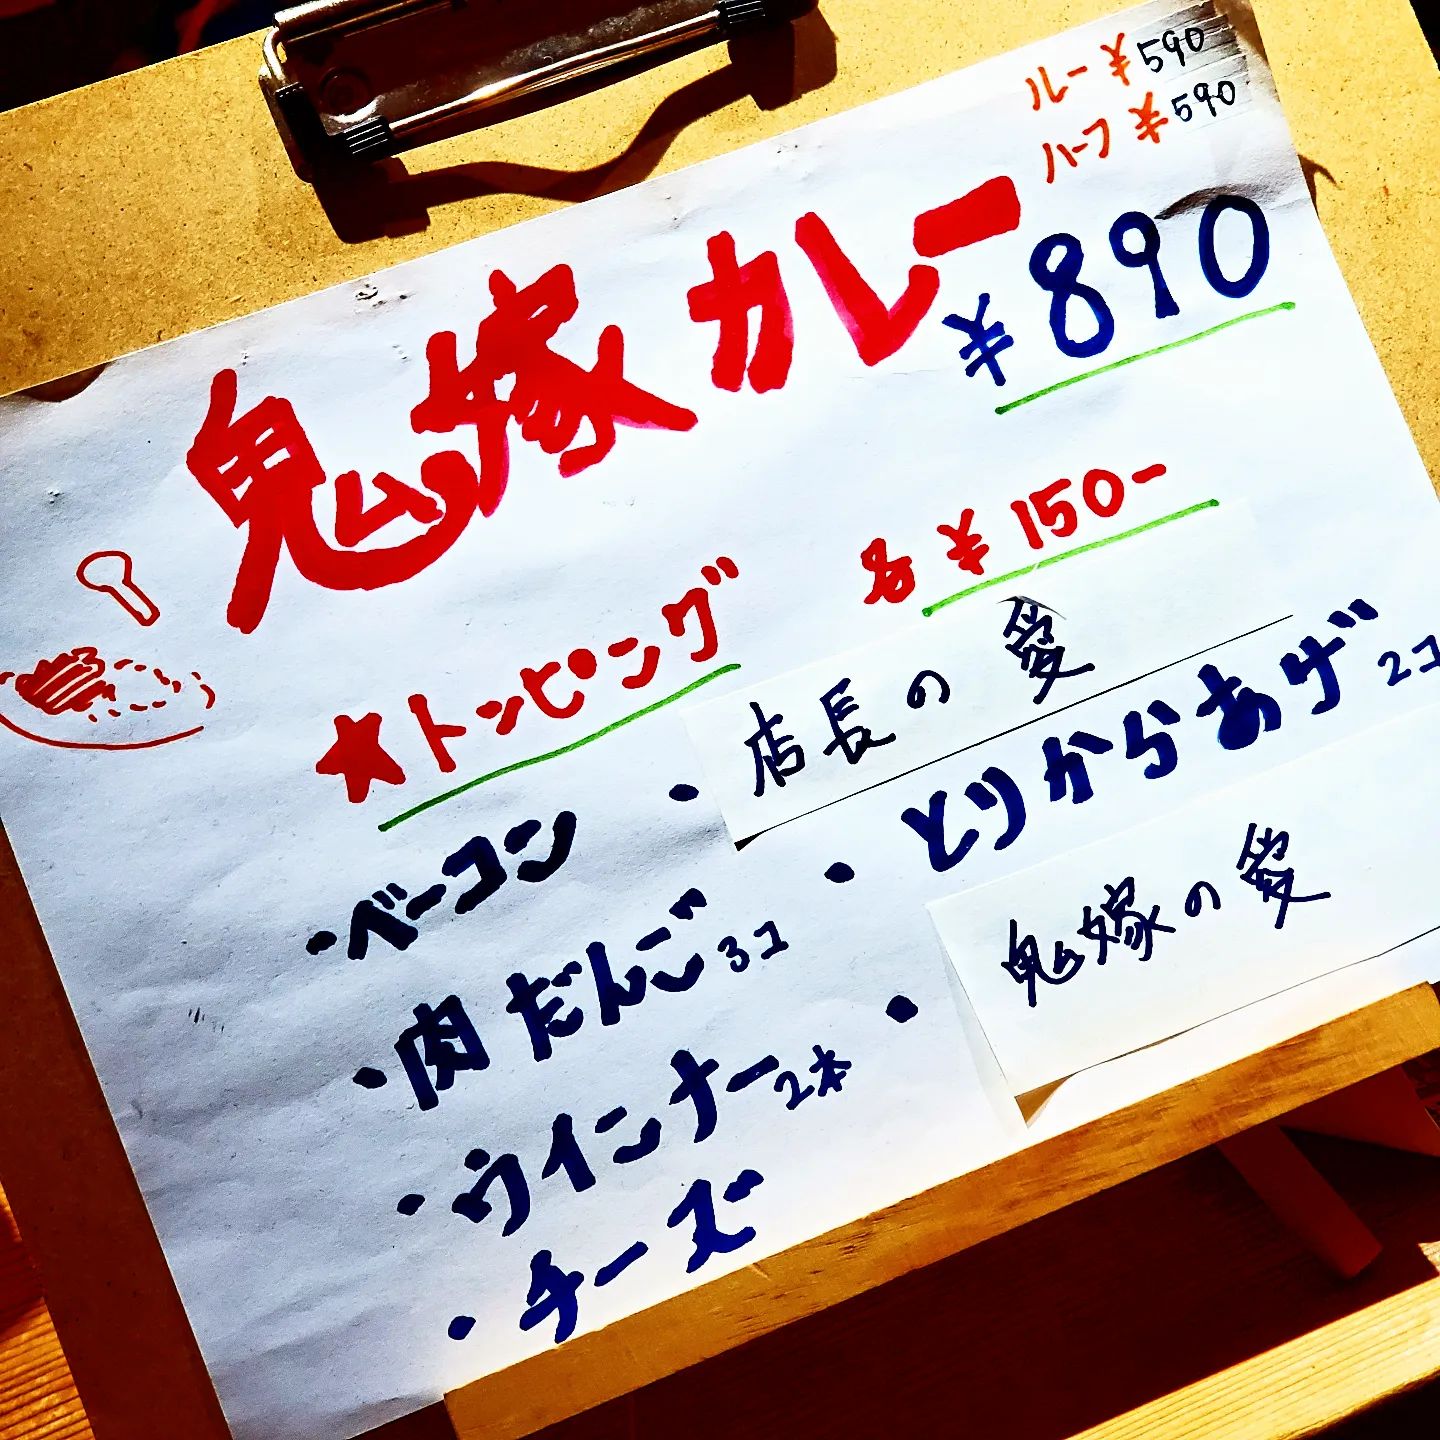 ルー ¥590
ハーフ ¥590
鬼嫁カレー ¥890
★トッピング 各¥150-
・ベーコン
・肉だんご3コ
・ウインナー2本
・チーズ
・店長の愛
・とりからあげ2コ
・鬼嫁の愛